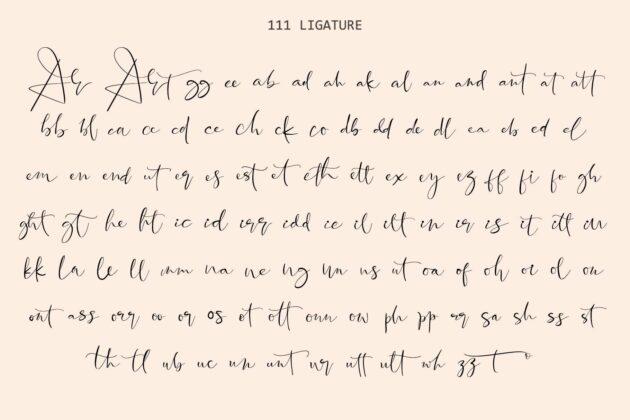 111 LIGATURE
gg ee ab ad ah ak al an and ant at att
bb bl ca cc cd ce ch ck co db dd de dl ea eb ed el
em en end er es est et eth ett ex ey ez ff fi fo gh
ght gt he ht ic id irr idd ie il ilt in ir is it itt
kk la le ll mm na ne ng nn ns nt oa of oh oi ol on
ont ass orr oo or os ot ott onn ow ph pp rr sa sh ss st
th tl ub uc un unt ur utt ult wh zz